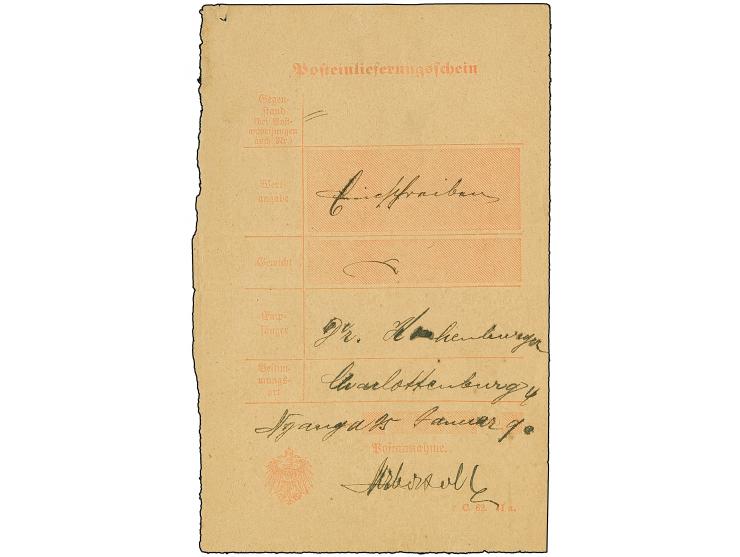 Posteinlieferungsschein
Gegen-
stand
(bei Post-
anweisungen
auch Nr.)
"
Wert-
angabe
Einschreiben
Gewicht
Emp-
fänger
Dr.
Bestim-
mungs-
ort
Charlottenburg 4
25 Januar
Postannahme.
C. 62.